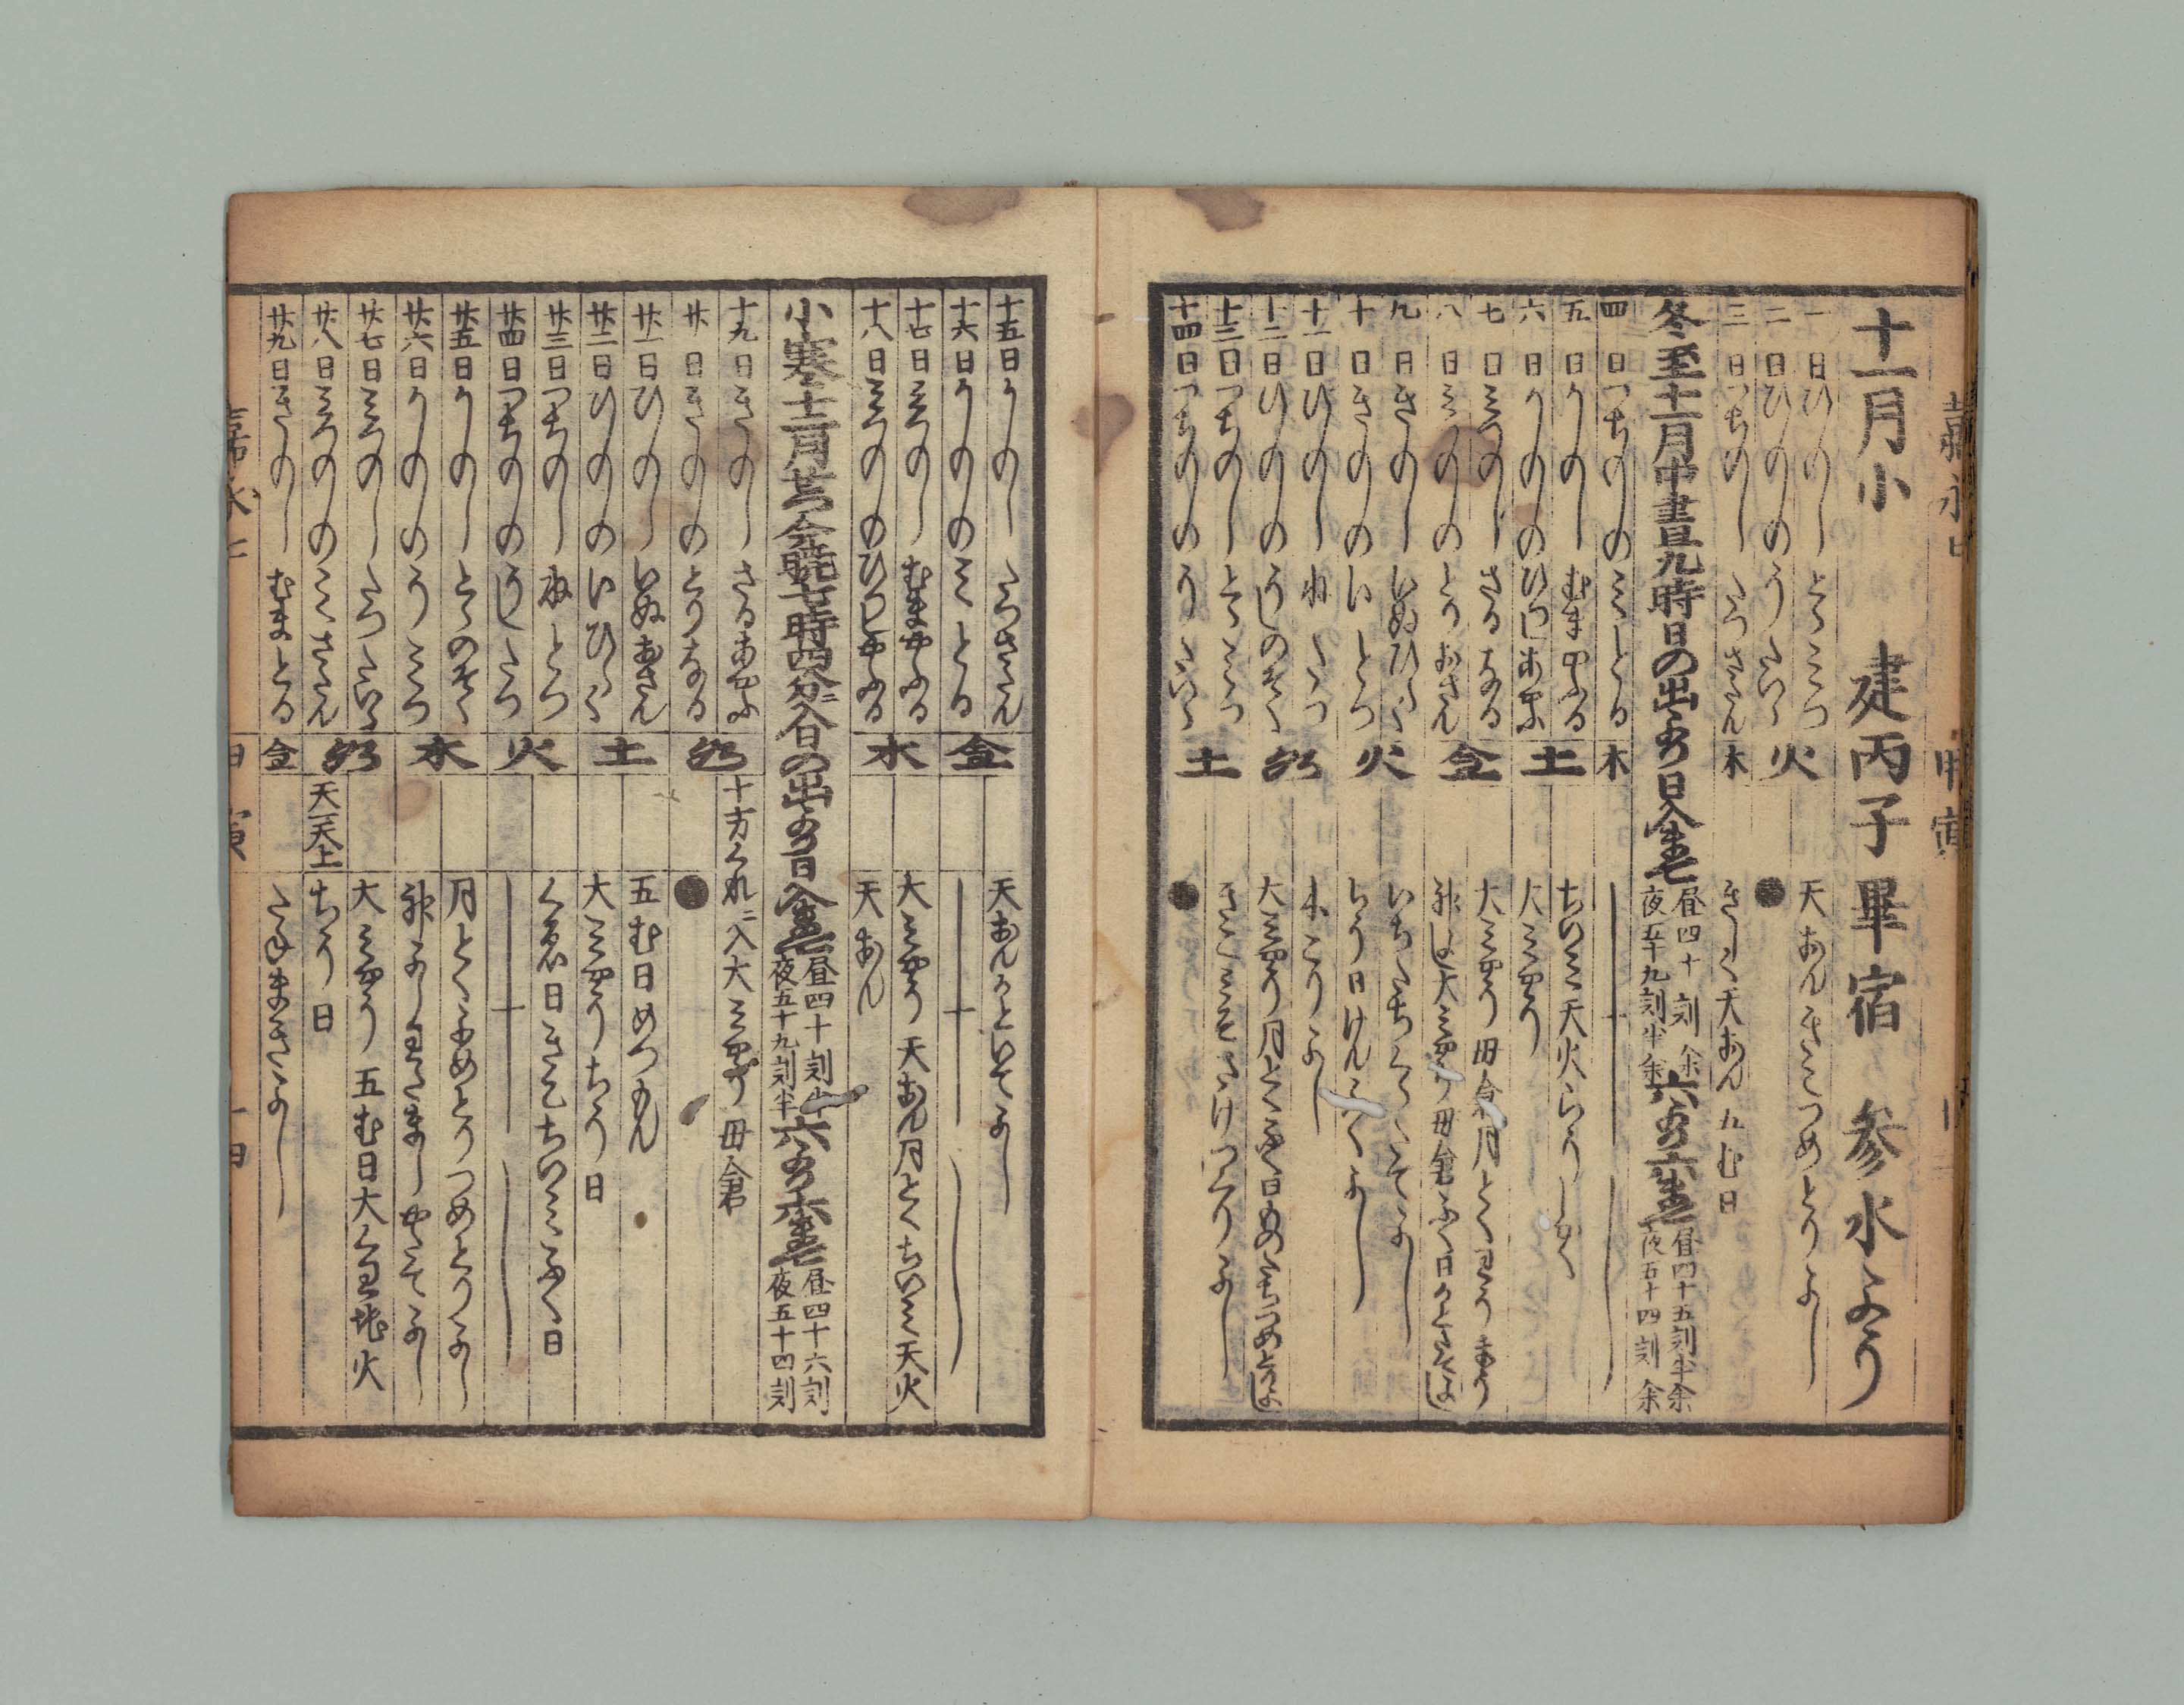 嘉永七 甲寅
十一月小 建丙子 畢宿 参水よう
一日ひのへとら みつ 火 天おん きこ つめとりよし
二日ひのとのう たいら ●
三日つちのへたつ さたん 木 きしく 天おん 五む日
冬至十一月中 昼九時 日の出より日入まて 昼四十刻余 夜五十九刻半余 六より六まて 昼四十五刻半余 夜五十四刻余
四日つちのとのみ とる 木 十
五日かのへむま やふる 土 ちいミ 天火 らうしやく
六日かのとのひつし あやふ 大ミやう
七日みつのへさる なる 金 大ミやう 母倉 月とく
八日みつのとのとり おさん 神よし 大ミやう 母倉 ふく日
九日きのへいぬ ひらく 火 いちたちくらたてよし
十日きのとのい とつ ちう日 けんふくよし
十一日ひのへね たつ 神 木こりよし
十二日ひのとのうし のそく 大ミやう 月とく ふく日
十三日つちのへとら みつ 土 きこ ミそさけつくりよし
十四日つちのとのう たいら ●
十五日かのへたつ さたん 金 天おん かといてよし
十六日かのとのみ とる 十
十七日みつのへむま やふる 水 大ミやう 天おん 月とく ちいミ 天火
十八日みつのとのひつし やふる 天おん
小寒十二月せつ 今暁七時四分ニ入 日の出より日入まて 昼四十刻半 夜五十九刻半 六より六まて 昼四十六刻 夜五十四刻
十九日きのへさる あやふ 神 十方くれニ入 大ミやう 母倉
廿日きのとのとり なる ●
廿一日ひのへいぬ おさん 土 五む日 めつもん
廿二日ひのとのい ひらく 大ミやう ちう日
廿三日つちのへね とつ 火 くゑ日 きこ ちいミ ふく日
廿四日つちのとのうし たつ 十
廿五日かのへとら のそく 水 月とく よめとり つめとりよし
廿六日かのとのう みつ 神よし わたまし やたてよし
廿七日みつのへたつ たいら 神 大ミやう 五む日 大くわ 地火
廿八日みつのとのみ さたん 天一天上 ちう日
廿九日きのへむま とる 金 たねまきよし
嘉永七 甲寅 十四